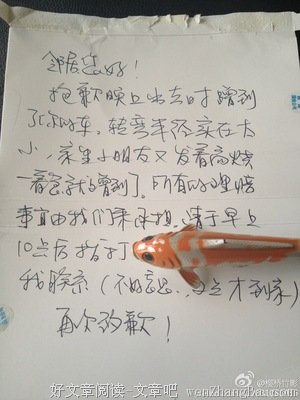 邻居您好!
抱歉晚上出去时蹭到
了你的车,转弯半径实在太
小,家里小朋友又发着高烧
一着急就蹭到了。所有的理赔
事宜由我们来承担,请于早上
10点后拨打
我联系(不好意思,2点才到家)
再次致歉!
@樱桥竹影
好文章阅读-文章吧 wenzhangba.com